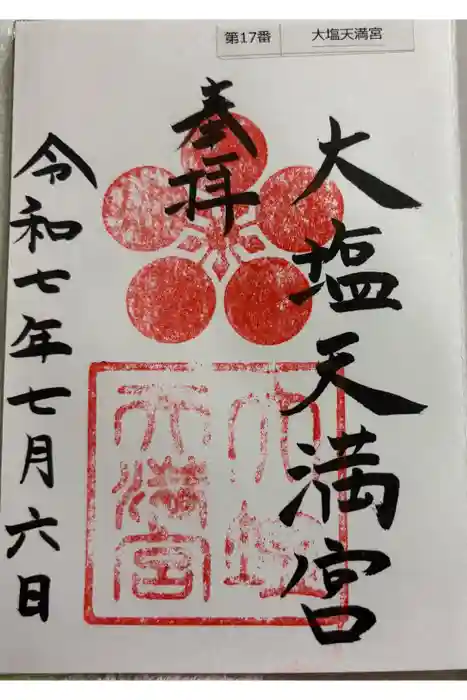 第17番 大塩天満宮
奉拝
大塩天満宮
令和七年七月六日
大塩
天満宮